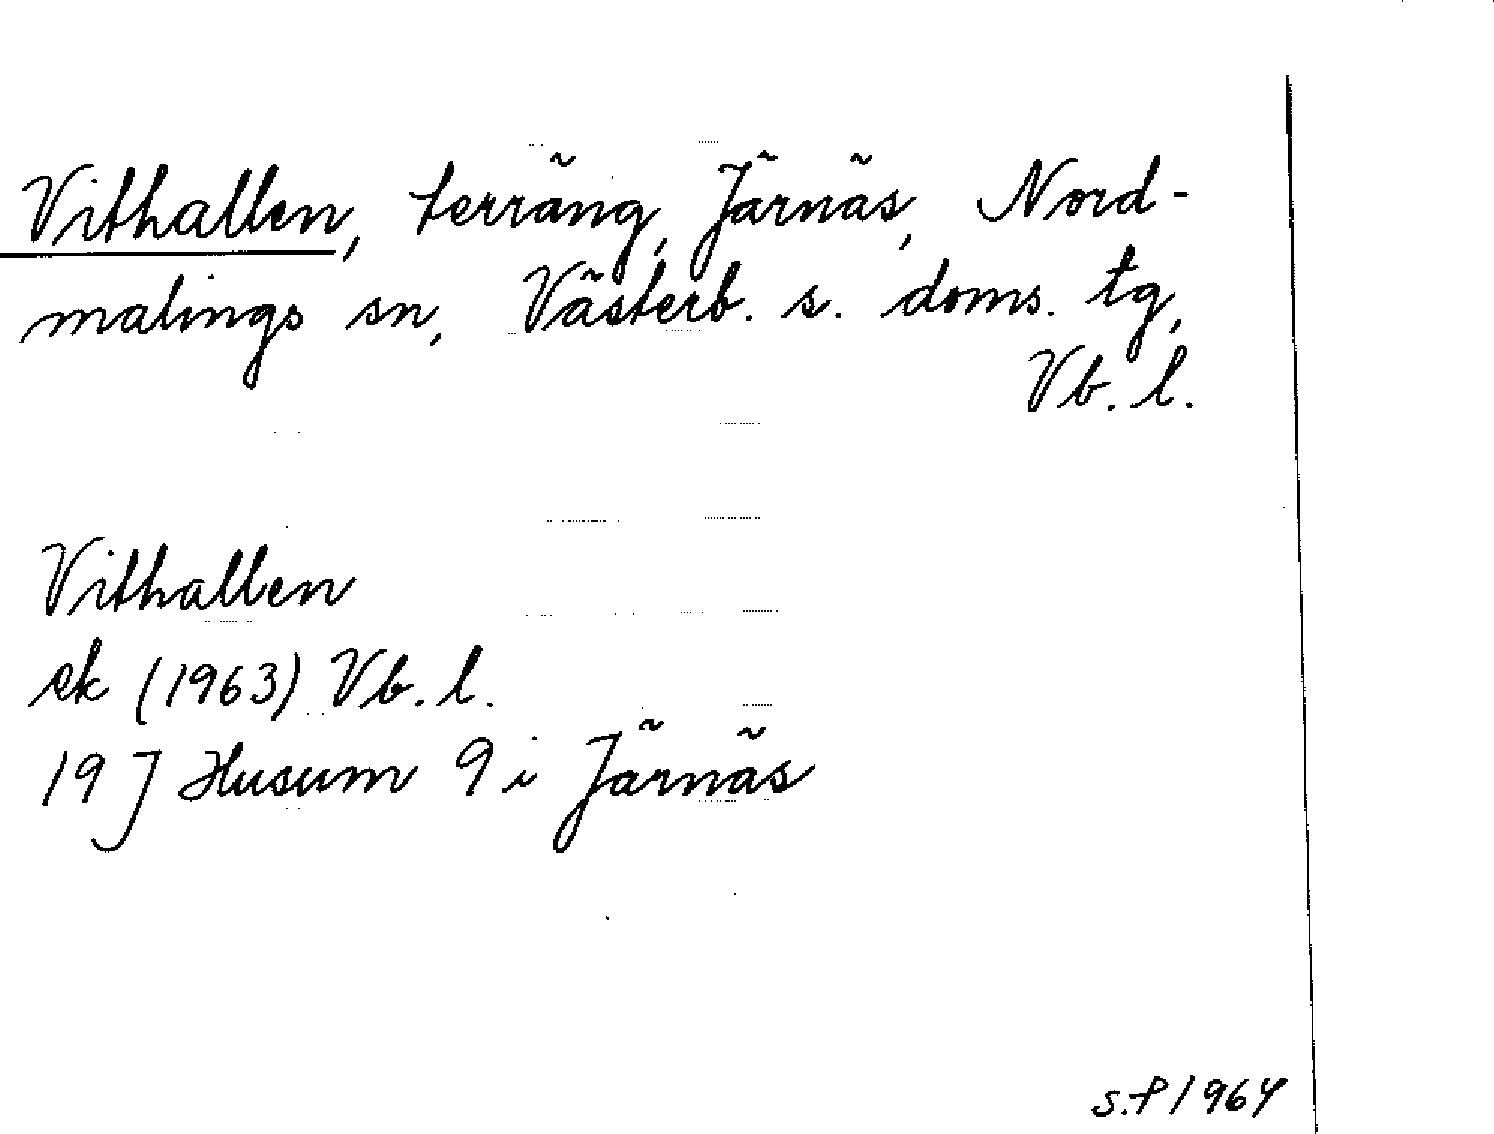 Vithallen, terräng, Järnäs, Nord-
malings sn, Västerb. s. doms. tg,
Vb. l.
Vithallen
ek (1963) Vb. l.
19 J Husum 9 i Järnäs
S.P 1964